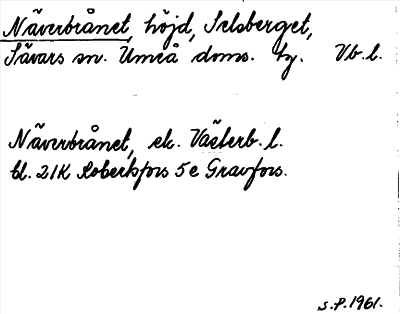 Näverbrånet, höjd, Selsberget,
Sävars sn. Umeå doms. tg. Vb. l.
Näverbrånet, ek. Västerb. l.
bl. 21K Robertsfors 5 e Gravfors.
S.P. 1961.